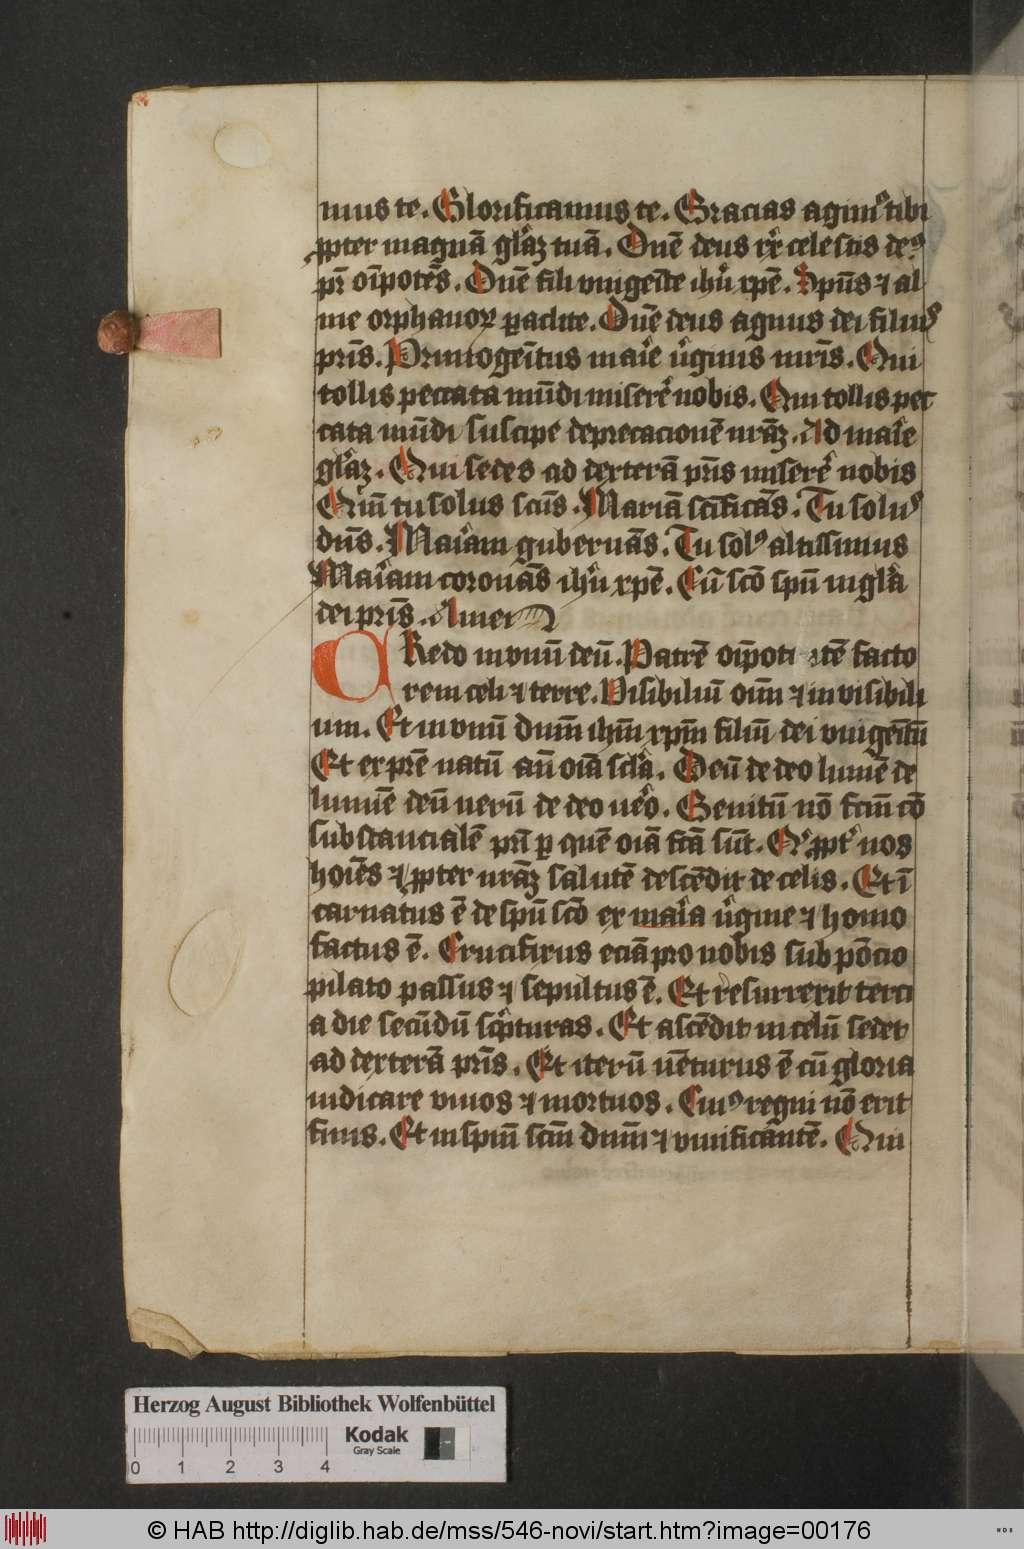 mus te. Glorificamus te. Gracias agimꝰ tibi
ꝓpter magnā gl'aꝫ tuā. Dn̄e deus rex celestis deꝰ
pr̄ oīpotēs. Dn̄e fili vnigenīte ihū xpē. Sp̄us ⁊ al
me orphanoꝝ ꝑaclite. Dn̄e deus agnus dei filiuꝰ
pr̄is. Primogenītus marie v'ginis mr̄is. Qui
tollis peccata mūdi miserer' nobis. Qui tollis pec
cata mūdi suscipe deprecacionē nr̄aꝫ. Ad marie
gl'aꝫ. Qui sedes ad dexterā pr̄is miserer' nobis
Qm̄ tu solus scūs. Mariā scīficās. Tu soluꝰ
dn̄s. Mariam gubernās. Tu solꝰ altissimus
Mariam coronās ihū xpē. Cū scō spū in gl'a
dei pr̄is. Amen
CRedo in vnū deū. Patrē oīpotentē facto
rem celi ⁊ terre. Visibiliū oīm ⁊ invisibili
um. Et in vnū dn̄m ihm̄ xpm̄ filiū dei vnigenītū
Et ex pr̄e natū an̄ oīa scl'a. Deū de deo lumē de
lumīe deū verū de deo v'o. Genitū nō fcm̄ cō
substancialē pr̄i ꝑ quē oīa fc̄a sūt. Qꝛ ꝓpt' nos
hoīes ⁊ ꝓpter nr̄aꝫ salutē descēdit de celis. Et ī
carnatus ē de spū scō ex maria v'gine ⁊ homo
factus ē. Crucifixus eciā pro nobis sub pōcio
pilato passus ⁊ sepultus ē. Et resurrexit terci
a die secūdū sc'pturas. Et ascēdit in celū sedet
ad dexterā pr̄is. Et iterū vēturus ē cū gloria
iudicare viuos ⁊ mortuos. Cuiꝰ regni nō erit
finis. Et in spm̄ scm̄ dn̄m ⁊ viuificantē. Qui
Herzog August Bibliothek Wolfenbüttel
Kodak
Gray Scale
0 1 2 3 4
© HAB http://diglib.hab.de/mss/546-novi/start.htm?image=00176